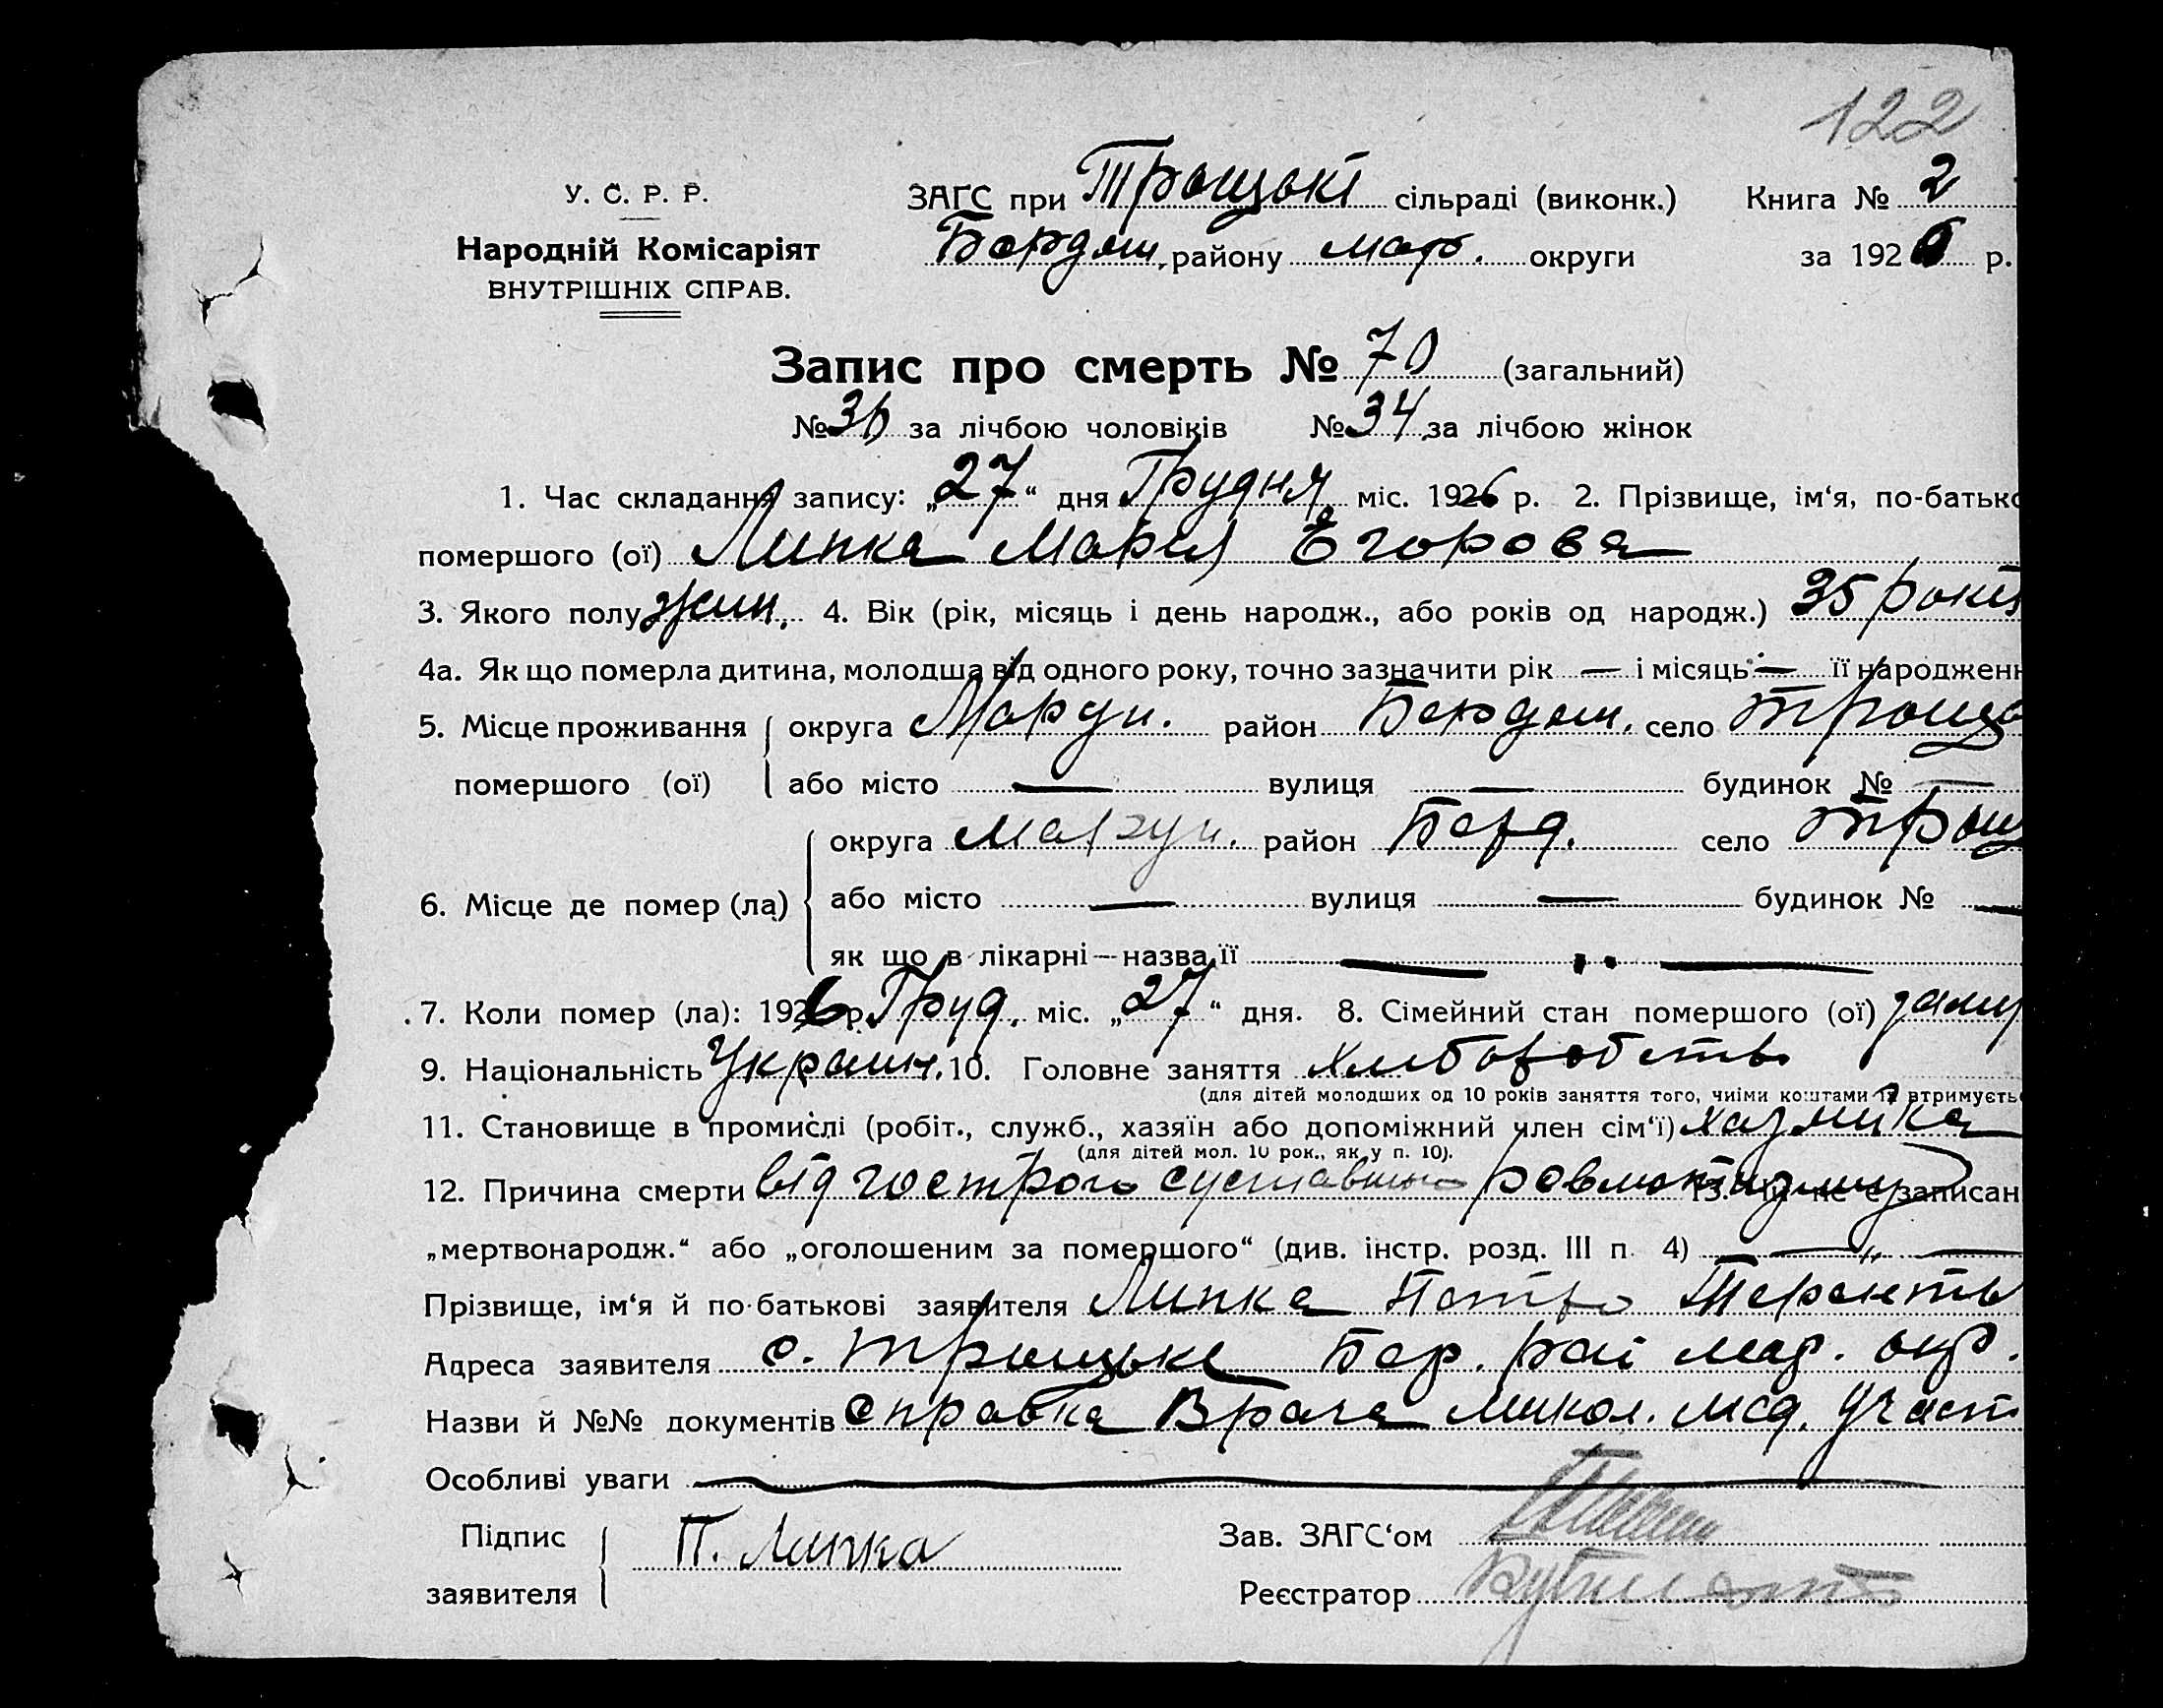 122
У. С. Р. Р.
Народній Комісаріят
ВНУТРІШНІХ СПРАВ.
ЗАГС при Троцькі сільраді (виконк.) Книга № 2
району мар. округи за 1926 р.
Запис про смерть № 70 (загальний)
№ 36 за лічбою чоловіків № 34 за лічбою жінок
1. Час складання запису: „27“ дня Грудня міс. 1926 р. 2. Прізвище, ім‘я, по-батько
помершого (ої) Липка Мария Егорова
3. Якого полу жин. 4. Вік (рік, місяць і день народж., або років од народж.) 35 років
4а. Як що померла дитина, молодша від одного року, точно зазначити рік — і місяць — її народжен
5. Місце проживання округа Мариун. район село Троцьк
помершого (ої) або місто — вулиця — будинок № —
округа район Берд. село
6. Місце де помер (ла) або місто — вулиця — будинок № —
як що в лікарні—назва її —
7. Коли помер (ла): 1926 р. Груд. міс. „27“ дня. 8. Сімейний стан помершого (ої) замуж
9. Національність Украин. 10. Головне заняття Хліборобство
(для дітей молодших од 10 років заняття того, чиїми коштами їх втримуєть
11. Становище в промислі (робіт., служб., хазяїн або допоміжний член сім‘ї) хазяика
(для дітей мол. 10 рок., як у п. 10).
12. Причина смерти від гострого суставного ровматизму 13. Чи не є записан
„мертвонародж.“ або „оголошеним за помершого“ (див. інстр. розд. III п. 4) — „ —
Прізвище, ім‘я й по-батькові заявителя Липка Петро Терентьв
Адреса заявителя с. Троцьке Бер. рай мар. окр.
Назви й №№ документів Справка Врача микол. мед. участ
Особливі уваги —
Підпис заявителя П. Липка
Зав. ЗАГС‘ом
Реєстратор